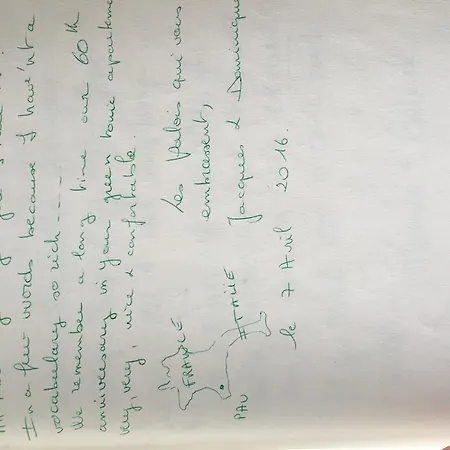 In a few words because I have'nt a
vocabulary so rich ----
We remember a long time our 60 th
anniversary in your green tonic
very, very, nice & confortable.
Les Palois qui vous
embrassent,
Jacques & Dominique
FRANCE
ITALIE
PAU
le 7 Avril 2016.